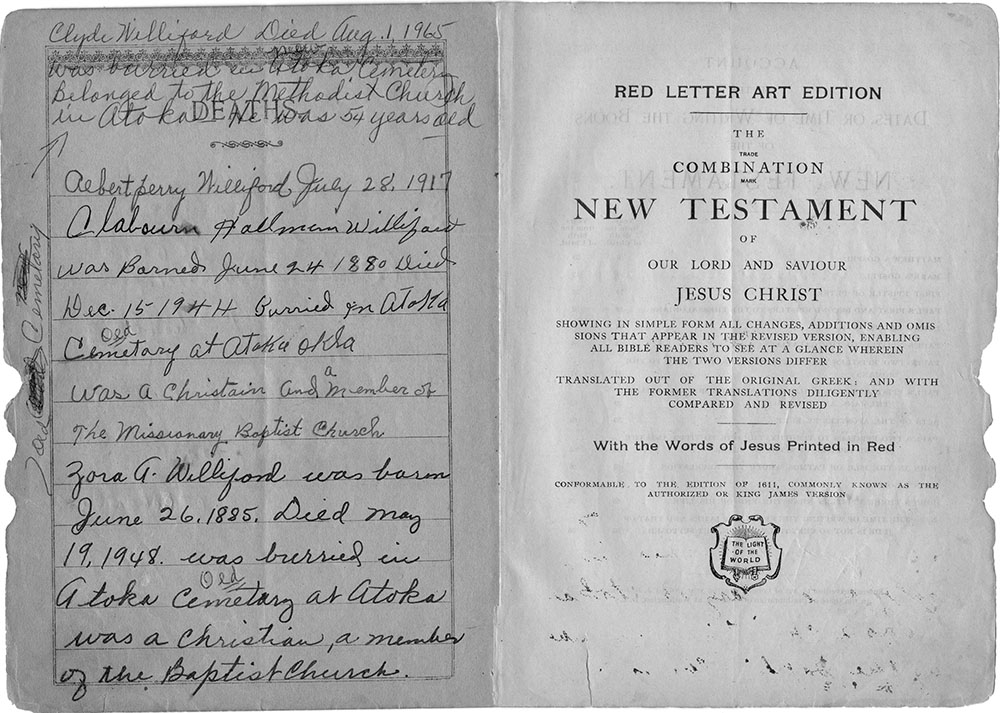 Clyde Williford Died Aug. 1, 1965
was burried in Atoka New Cemetery
Belonged to the Methodist Church
in Atoka He was 54 years old
DEATHS
Albert perry Williford July 28, 1917
Clabourn Hallman Williford
was Borned June 24 1880 Died
Dec. 15 1944 Burried In Atoka
Old
Cemetary at Atoka Okla
Was A Christain And a Member of
The Missionary Baptist Church
Zora A. Williford was born
June 26, 1885. Died may
19, 1948. was burried in
Old
Atoka Cemetary at Atoka
was a Christian, a member
of the Baptist Church.
old Cemetary
RED LETTER ART EDITION
THE
TRADE
COMBINATION
MARK
NEW TESTAMENT
OF
OUR LORD AND SAVIOUR
JESUS CHRIST
SHOWING IN SIMPLE FORM ALL CHANGES, ADDITIONS AND OMIS
SIONS THAT APPEAR IN THE REVISED VERSION, ENABLING
ALL BIBLE READERS TO SEE AT A GLANCE WHEREIN
THE TWO VERSIONS DIFFER
TRANSLATED OUT OF THE ORIGINAL GREEK; AND WITH
THE FORMER TRANSLATIONS DILIGENTLY
COMPARED AND REVISED
With the Words of Jesus Printed in Red
CONFORMABLE TO THE EDITION OF 1611, COMMONLY KNOWN AS THE
AUTHORIZED OR KING JAMES VERSION
THE LIGHT
OF THE
WORLD